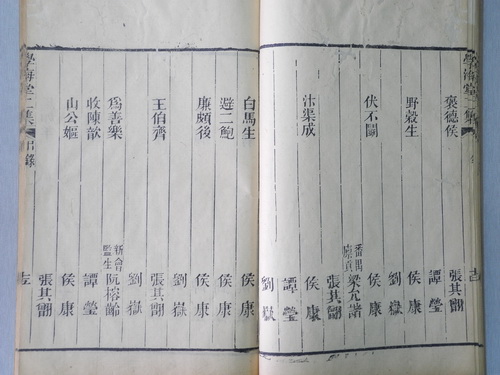 學海堂二集
褒德侯 張其䎖
譚瑩
野穀生 侯康
劉嶽
伏不鬭 侯康
番禺 梁允諧
張其䎖
汴渠成 侯康
譚瑩
劉嶽
白馬生 侯康
避二鮑 侯康
廉頗後 侯康
劉嶽
王伯齊 張其䎖
劉嶽
爲善樂 新會監生 阮榕齡
收陳歆 譚瑩
山公嫗 侯康
張其䎖
學海堂二集 目錄